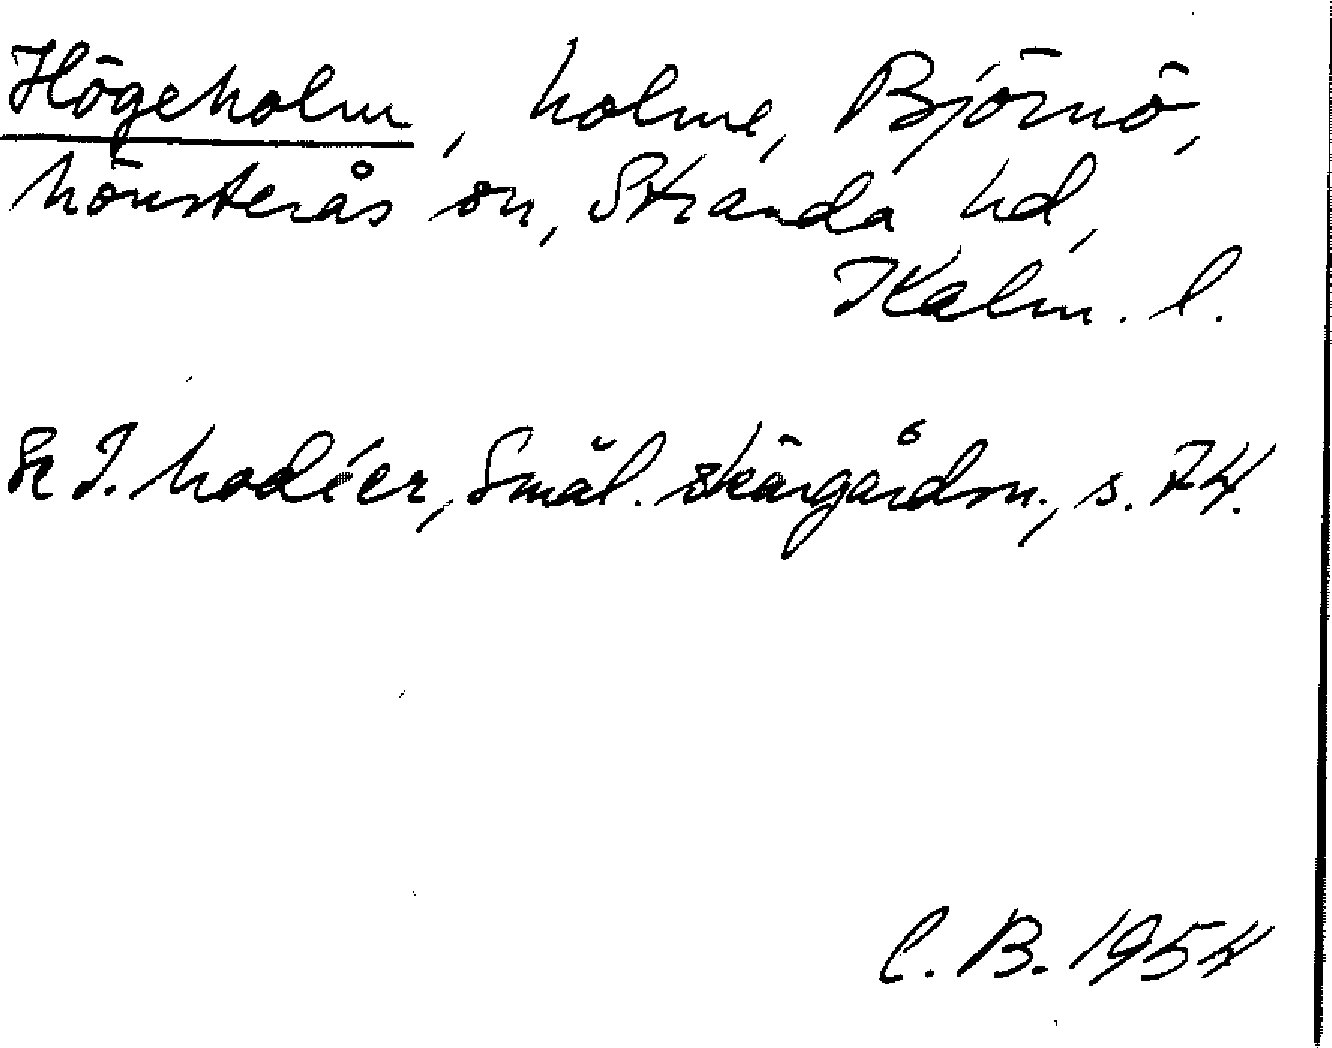 Högeholm, holme, Björnö,
Mönsterås sn, Stranda hd,
Kalm. l.
Se I. Modéer, Smål. skärgårdsn., s. 74.
C. B. 1954